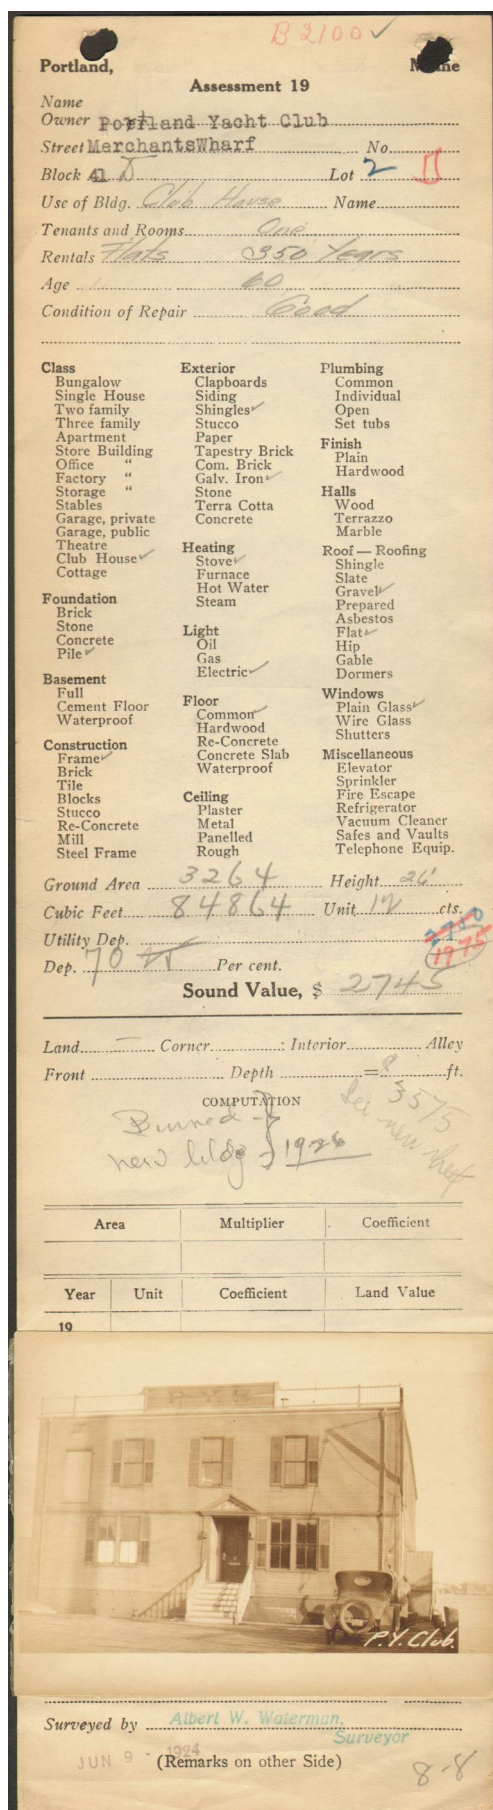 B 2100 ✓
Portland, Maine
Assessment 19
Name
Owner Portland Yacht Club
Street MerchantsWharf No.
Block 41 D Lot 2
Use of Bldg. Club House Name
Tenants and Rooms One
Rentals Flats 350 Years
Age 60
Condition of Repair Good
Class
Bungalow
Single House
Two family
Three family
Apartment
Store Building
Office "
Factory "
Storage "
Stables
Garage, private
Garage, public
Theatre
Club House ✓
Cottage
Foundation
Brick
Stone
Concrete
Pile ✓
Basement
Full
Cement Floor
Waterproof
Construction
Frame ✓
Brick
Tile
Blocks
Stucco
Re-Concrete
Mill
Steel Frame
Exterior
Clapboards
Siding
Shingles ✓
Stucco
Paper
Tapestry Brick
Com. Brick
Galv. Iron ✓
Stone
Terra Cotta
Concrete
Heating
Stove ✓
Furnace
Hot Water
Steam
Light
Oil
Gas
Electric ✓
Floor
Common ✓
Hardwood
Re-Concrete
Concrete Slab
Waterproof
Ceiling
Plaster
Metal
Panelled
Rough
Plumbing
Common
Individual
Open
Set tubs
Finish
Plain
Hardwood
Halls
Wood
Terrazzo
Marble
Roof — Roofing
Shingle
Slate
Gravel ✓
Prepared
Asbestos
Flat ✓
Hip
Gable
Dormers
Windows
Plain Glass ✓
Wire Glass
Shutters
Miscellaneous
Elevator
Sprinkler
Fire Escape
Refrigerator
Vacuum Cleaner
Safes and Vaults
Telephone Equip.
Ground Area 3264 Height 26'
Cubic Feet 84864 Unit 12 cts.
Utility Dep. 2750
1975
Dep. 70 Per cent.
Sound Value, $ 2745
Land Corner : Interior Alley
Front Depth = ft.
COMPUTATION
3575
See new sheet
Burned
new bldg } 1926
Area Multiplier Coefficient
Year Unit Coefficient Land Value
19
P.Y.C.
P.Y. Club.
Surveyed by Albert W. Waterman,
Surveyor
JUN 9 - 1924
(Remarks on other Side)
8-8